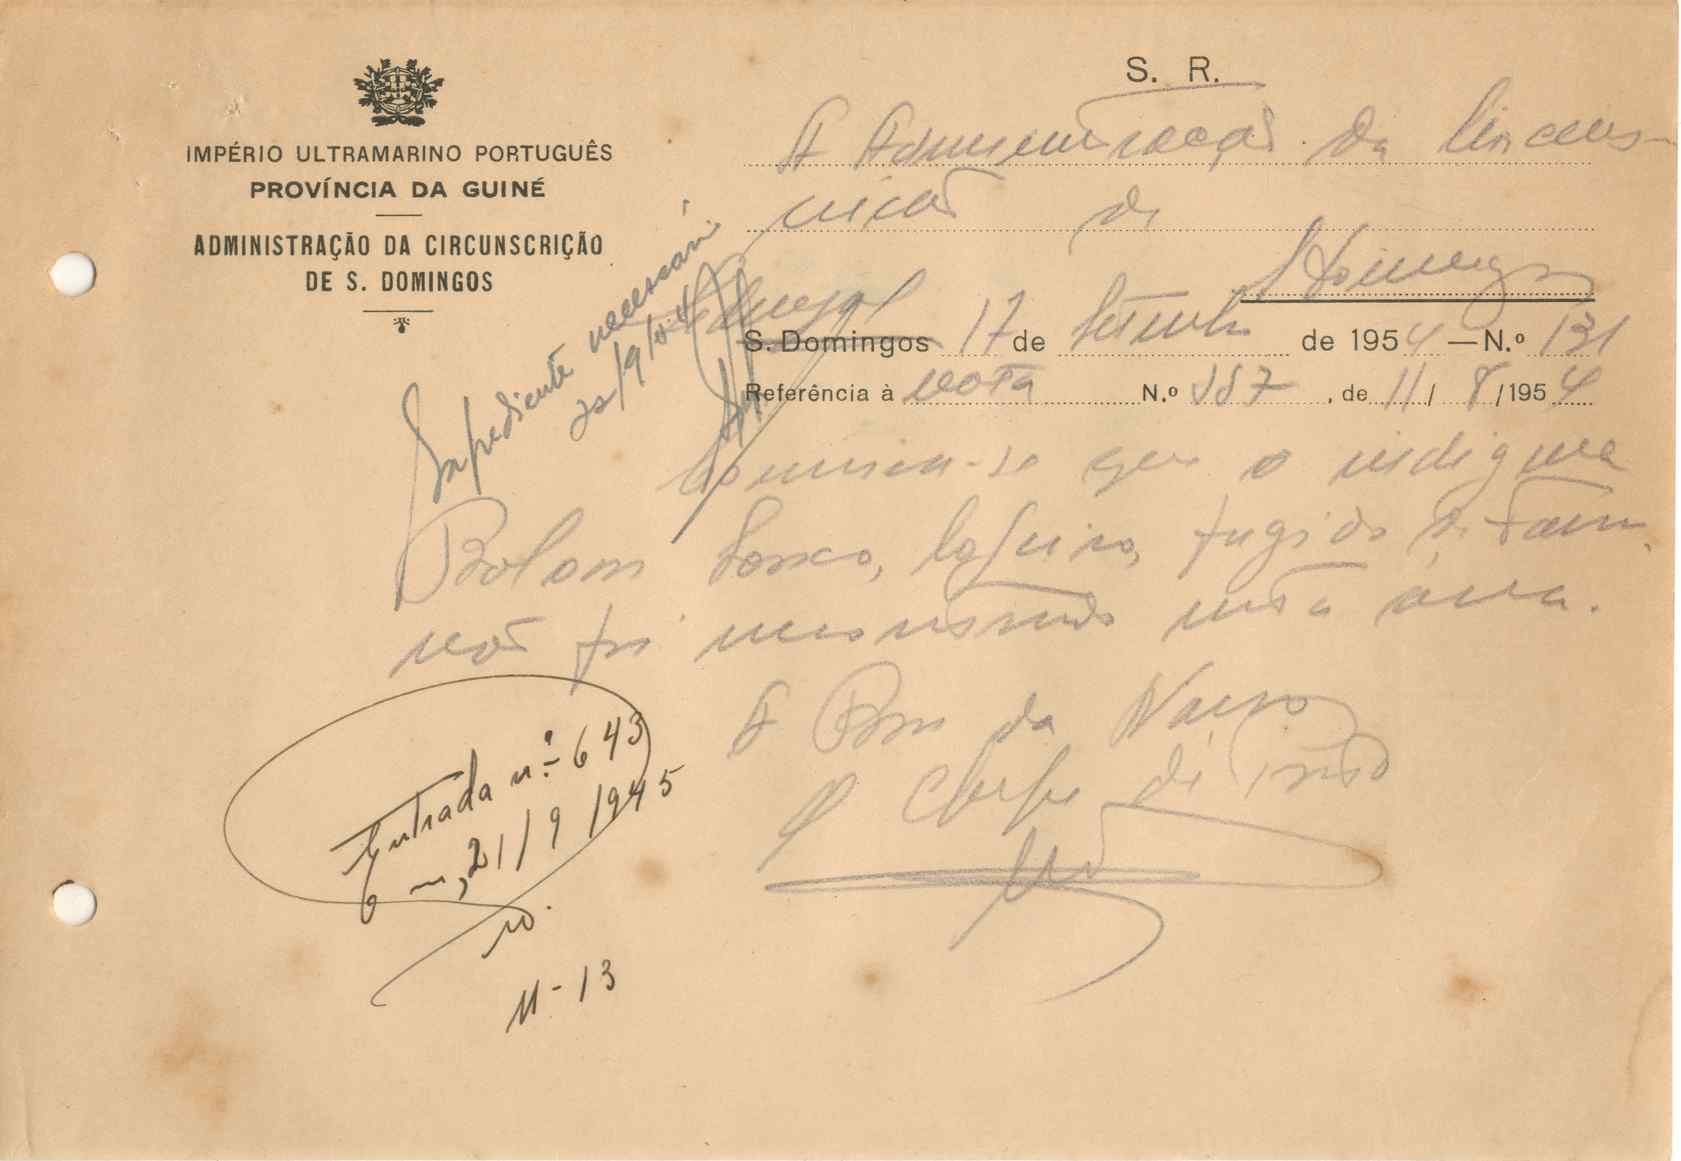 S. R.
IMPÉRIO ULTRAMARINO PORTUGUÊS
PROVÍNCIA DA GUINÉ
ADMINISTRAÇÃO DA CIRCUNSCRIÇÃO
DE S. DOMINGOS
A Administração da Circuns-
crição de
S. Domingos
S. Domingos 17 de Setembro de 1954 — N.º 131
Referência à nota N.º 387, de 11/8/1954
Expediente necessário
22/9/54
Comunica-se que o indigena
fugido de Farim
não foi encontrado nesta área.
A Bem da Nação
O Chefe de Posto
Entrada n.º 643
Em, 21/9/1945
11-13